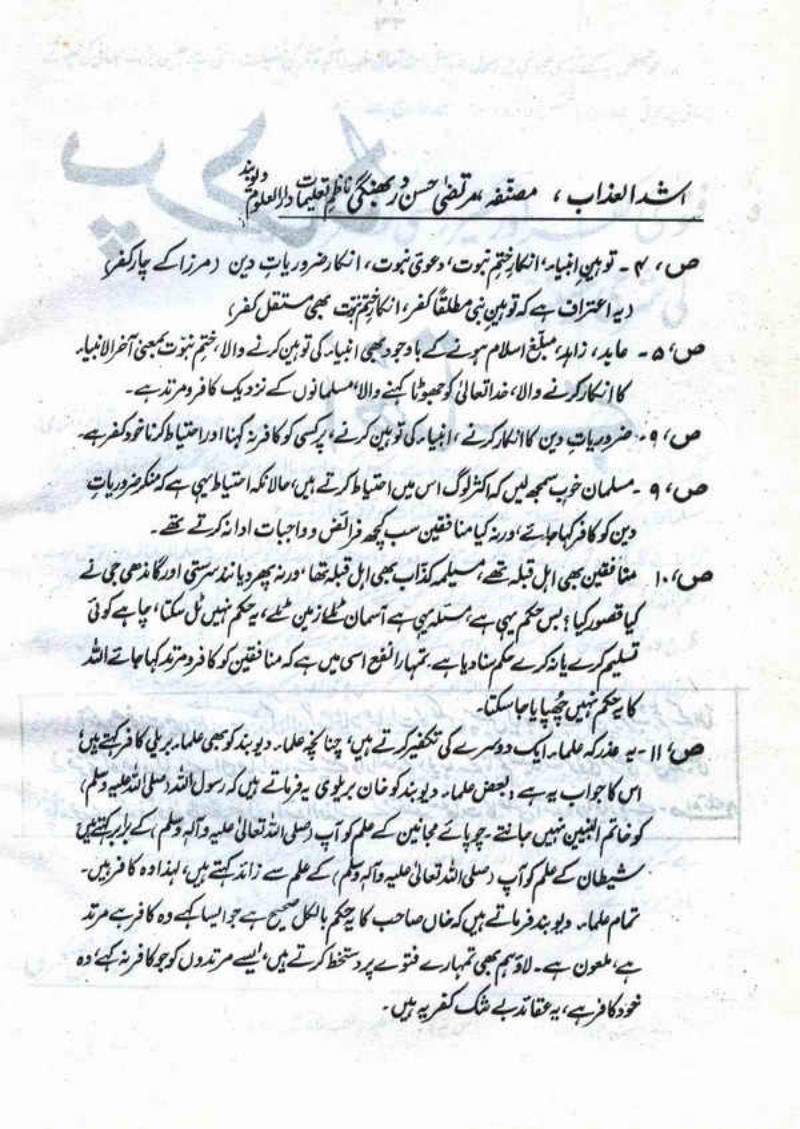 اشد العذاب، مصنّفہ مرتضیٰ حسن دربھنگی ناظم تعلیمات دارالعلوم دیوبند
ص، ۴۔ توہینِ انبیاء، انکارِ ختمِ نبوت، دعویٰ نبوت، انکار ضروریاتِ دین (مرزا کے چار کفر)
(یہ اعتراف ہے کہ توہینِ نبی مطلقاً کفر، انکارِ ختمِ نبوّت بھی مستقل کفر)
ص، ۵۔ عابد، زاہد، مبلّغ اسلام ہونے کے باوجود بھی انبیاء کی توہین کرنے والا، ختمِ نبوّت بمعنی آخر الانبیاء
کا انکار کرنے والا، خدا تعالیٰ کو جھوٹا کہنے والا، مسلمانوں کے نزدیک کافر و مرتد ہے۔
ص، ۹۔ ضروریاتِ دین کا انکار کرنے، انبیاء کی توہین کرنے، پر کسی کو کافر نہ کہنا اور احتیاط کرنا خود کفر ہے۔
ص، ۹۔ مسلمان خوب سمجھ لیں کہ اکثر لوگ اس میں احتیاط کرتے ہیں، حالانکہ احتیاط یہی ہے کہ منکرِ ضروریاتِ
دین کو کافر کہا جائے، ورنہ کیا منافقین سب کچھ فرائض و واجبات ادا نہ کرتے تھے۔
ص، ۱۰ منافقین بھی اہل قبلہ تھے، مسیلمہ کذّاب بھی اہل قبلہ تھا، ورنہ پھر دیانند سرستی اور گاندھی جی نے
کیا قصور کیا؟ بس حکم یہی ہے، مسئلہ یہی ہے آسمان ٹلے زمین ٹلے، یہ حکم نہیں ٹل سکتا، چاہے کوئی
تسلیم کرے یا نہ کرے حکم سنا دیا ہے۔ تمہارا نفع اسی میں ہے کہ منافقین کو کافر و مرتد کہا جائے اللہ
کا یہ حکم نہیں چُھپایا جا سکتا۔
ص، ۱۱۔ یہ عذر کہ علماء ایک دوسرے کی تکفیر کرتے ہیں، چنانچہ علماء دیوبند کو بھی علماء بریلی کافر کہتے ہیں،
اس کا جواب یہ ہے؛ بعض علماء دیوبند کو خان بریلوی یہ فرماتے ہیں کہ رسول اللہ (صلی اللہ علیہ وسلم)
کو خاتم النبیین نہیں جانتے۔ چوپائے مجانین کے علم کو آپ (صلی اللہ تعالیٰ علیہ و آلہٖ وسلم) کے برابر کہتے ہیں
شیطان کے علم کو آپ (صلی اللہ تعالیٰ علیہ و آلہٖ وسلم) کے علم سے زائد کہتے ہیں، لہٰذا وہ کافر ہیں۔
تمام علماء دیوبند فرماتے ہیں کہ خاں صاحب کا یہ حکم بالکل صحیح ہے جو ایسا کہے وہ کافر ہے مرتد
ہے، ملعون ہے۔ لاؤ ہم بھی تمہارے فتوے پر دستخط کرتے ہیں، ایسے مرتدوں کو جو کافر نہ کہے، وہ
خود کافر ہے، یہ عقائد بے شک کفریہ ہیں۔